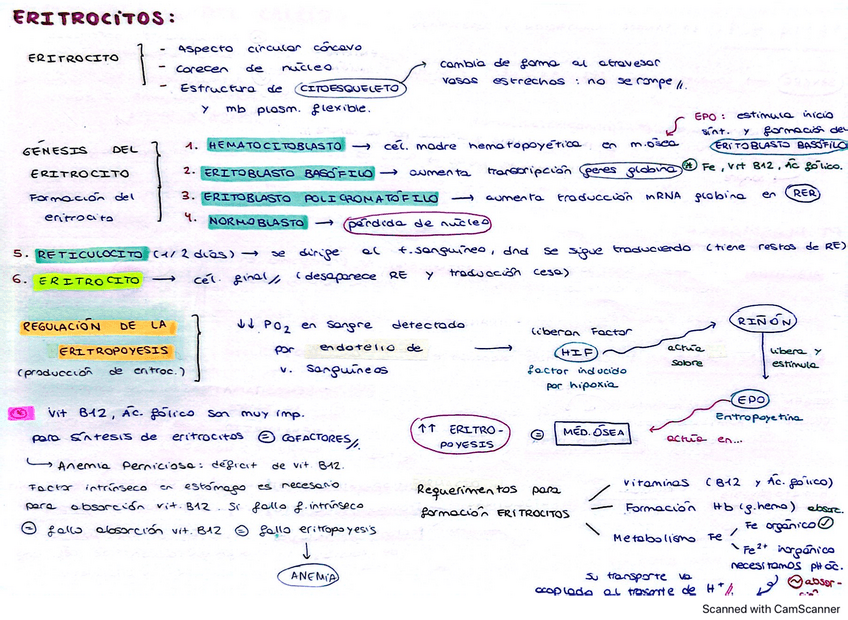 ERITROCITOS:
ERITROCITO
- Aspecto circular cóncavo
- Carecen de núcleo
- Estructura de CITOESQUELETO
y mb plasm. flexible.
cambia de forma al atravesar
vasos estrechos : no se rompe //.
GÉNESIS DEL
ERITROCITO
Formación del
eritrocito
1. HEMATOCITOBLASTO → cél. madre hematopoyética en m.ósea
EPO : estimula inicio
sínt. y formación del
ERITOBLASTO BASÓFILO
2. ERITOBLASTO BASÓFILO → aumenta transcripción genes globina * Fe, Vit B12, Ác. fólico.
3. ERITOBLASTO POLICROMATÓFILO → aumenta traducción mRNA globina en RER
4. NORMOBLASTO → pérdida de núcleo
5. RETICULOCITO (1/2 días) → se dirige al t.sanguíneo, dnd se sigue traduciendo (tiene restos de RE)
6. ERITROCITO → cél. final // (desaparece RE y traducción cesa)
REGULACIÓN DE LA
ERITROPOYESIS
(producción de eritroc.)
↓↓ PO2 en sangre detectada
por endotelio de
v. sanguíneos
→
Liberan Factor
HIF
factor inducido
por hipoxia
actúa
sobre
RIÑÓN
libera y
estimula
EPO
Eritropoyetina
actúa en...
MÉD. ÓSEA
=
↑↑ ERITRO-
POYESIS
* Vit B12, Ác. fólico son muy imp.
para síntesis de eritrocitos = COFACTORES //.
↳ Anemia Perniciosa : déficit de vit B12.
Factor intrínseco en estómago es necesario
para absorción vit. B12. Si falla f. intrínseco
= fallo absorción vit. B12 = fallo eritropoyesis
↓
ANEMIA
Requerimientos para
formación ERITROCITOS
Vitaminas (B12 y Ác. fólico)
Formación Hb (g. hemo)
Metabolismo Fe
absorc.
Fe orgánico ✓
Fe2+ inorgánico
necesitamos pH ác.
~ absor-
ción
Su transporte va
acoplado al trasorte de H+ //.
Scanned with CamScanner